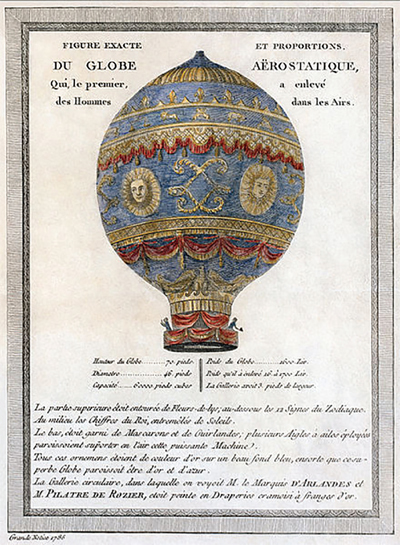 FIGURE EXACTE ET PROPORTIONS,
DU GLOBE AËROSTATIQUE,
Qui, le premier, a enlevé
des Hommes dans les Airs.
Hauteur du Globe..........70. pieds.
Diametre....................46. pieds
Capacité......60000 pieds cubes
Poids du Globe.............1600 Liv.
Poids qu'il a enlevé 16 à 1700 Liv.
La Gallerie avoit 3. pieds de largeur.
La partie superieure étoit entourée de Fleurs-de-lys, au-dessous les 12 Signes du Zodiaque.
Au milieu les Chiffres du Roi, entremêlés de Soleils.
Le bas, étoit garni de Mascarons et de Guirlandes; plusieurs Aigles à ailes éployées
paroissoient suporter en l'air cette puissante Machine.
Tous ces ornemens étoient de couleur d'or sur un beau fond bleu, ensorte que ce su-
perbe Globe paroissoit être d'or et d'azur.
La Gallerie circulaire, dans laquelle on voyoit M. le Marquis D'ARLANDES et
M. PILATRE DE ROZIER, étoit peinte en Draperies cramoisi à franges d'or.
1786